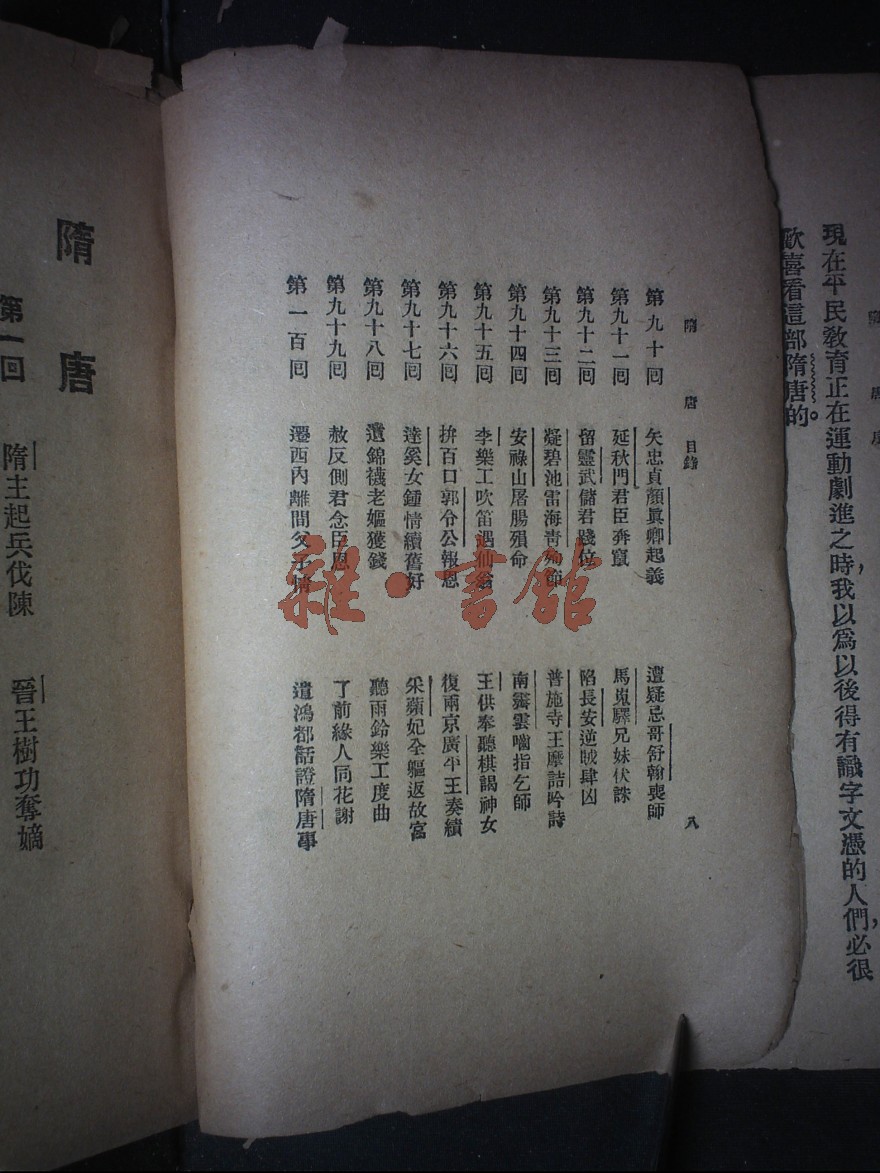 現在平民教育正在運動劇進之時，我以爲以後得有識字文憑的人們，必很
歡喜看這部隋唐的。
隋唐 目錄 八
第九十回 矢忠貞顏眞卿起義 遭疑忌哥舒翰喪師
第九十一回 延秋門君臣奔竄 馬嵬驛兄妹伏誅
第九十二回 留靈武儲君踐位 陷長安逆賊肆凶
第九十三回 凝碧池雷海靑殉節 普施寺王摩詰吟詩
第九十四回 安祿山屠腸殞命 南霽雲嚙指乞師
第九十五回 李樂工吹笛遇仙翁 王供奉聽棋謁神女
第九十六回 拚百口郭令公報恩 復兩京廣平王奏績
第九十七回 達奚女鍾情續舊好 采蘋妃全軀返故宮
第九十八回 遺錦襪老嫗獲錢 聽雨鈴樂工度曲
第九十九回 赦反側君念臣恩 了前緣人同花謝
第一百回 遷西內離間父子情 遣鴻都話證隋唐事
雜·書館
隋唐
第一回 隋主起兵伐陳 晉王樹功奪嫡